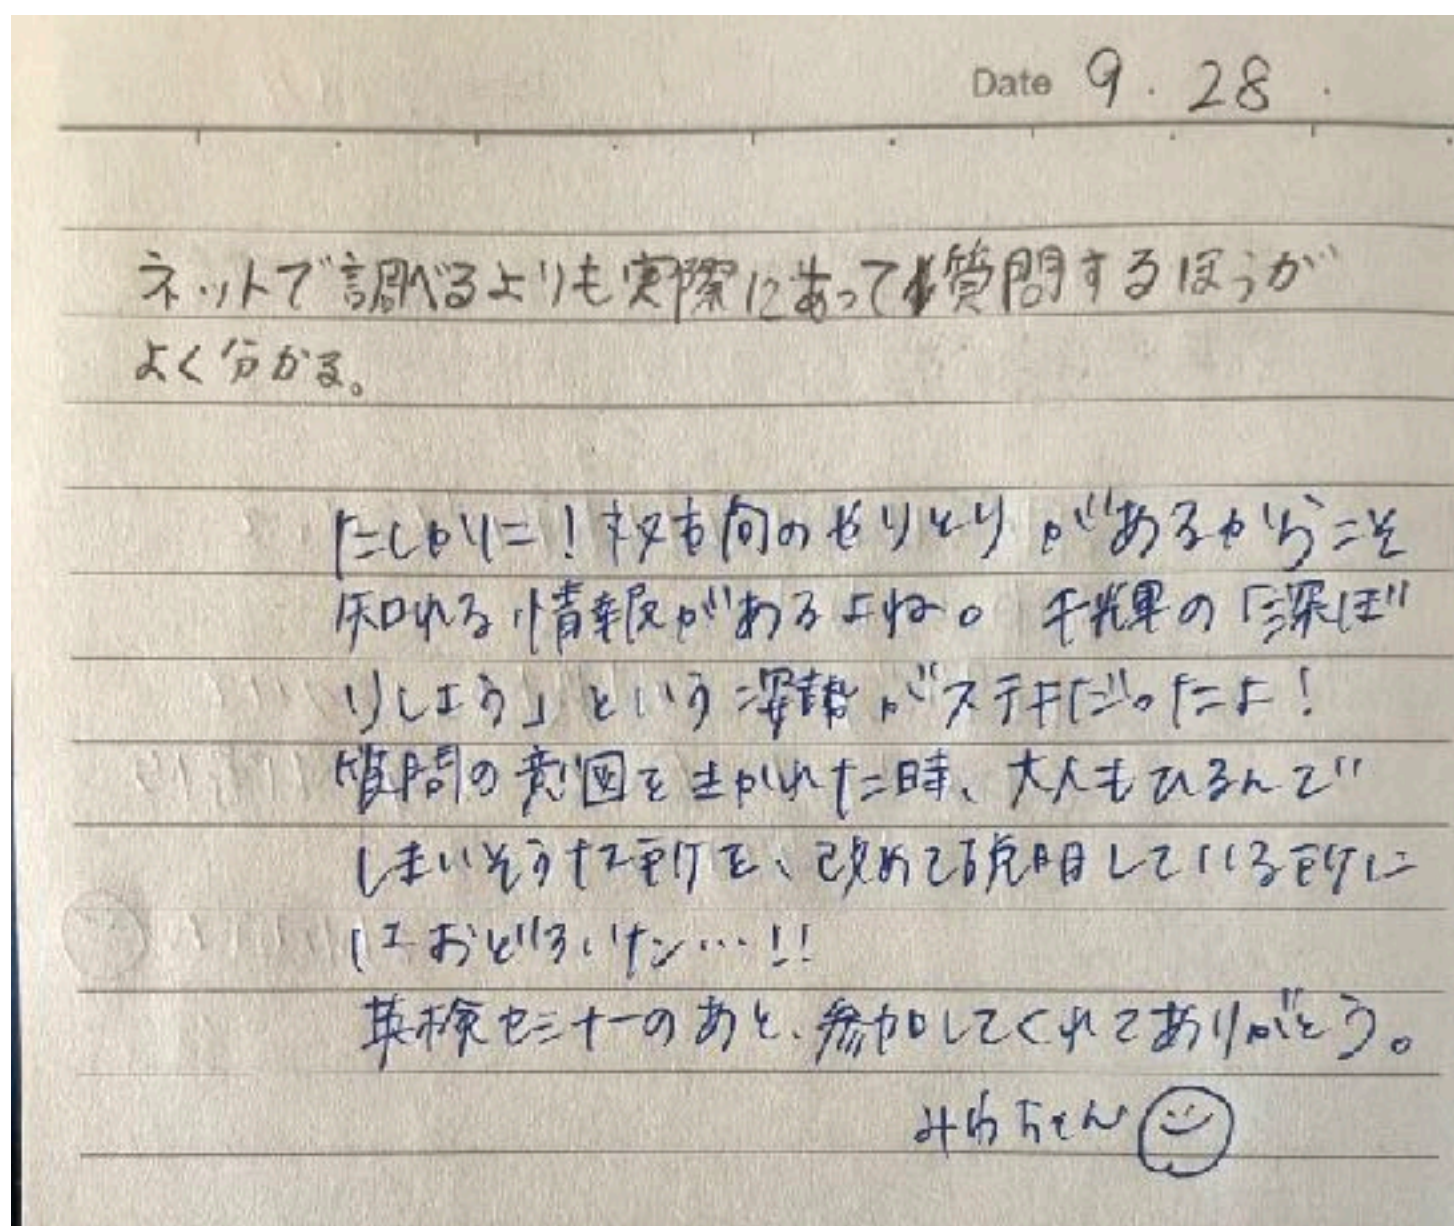 Date 9. 28.
ネットで調べるよりも実際にあって質問するほうが
よく分かる。
たしかに！双方向のやりとりがあるからこそ
知れる情報があるよね。千輝の「深ぼ
りしよう」という姿勢がステキだったよ！
質問の意図をきかれた時、大人もひるんで
しまいそうな所を、改めて説明している所に
はおどろいた…!!
英検セミナーのあと、参加してくれてありがとう。
みわちゃん